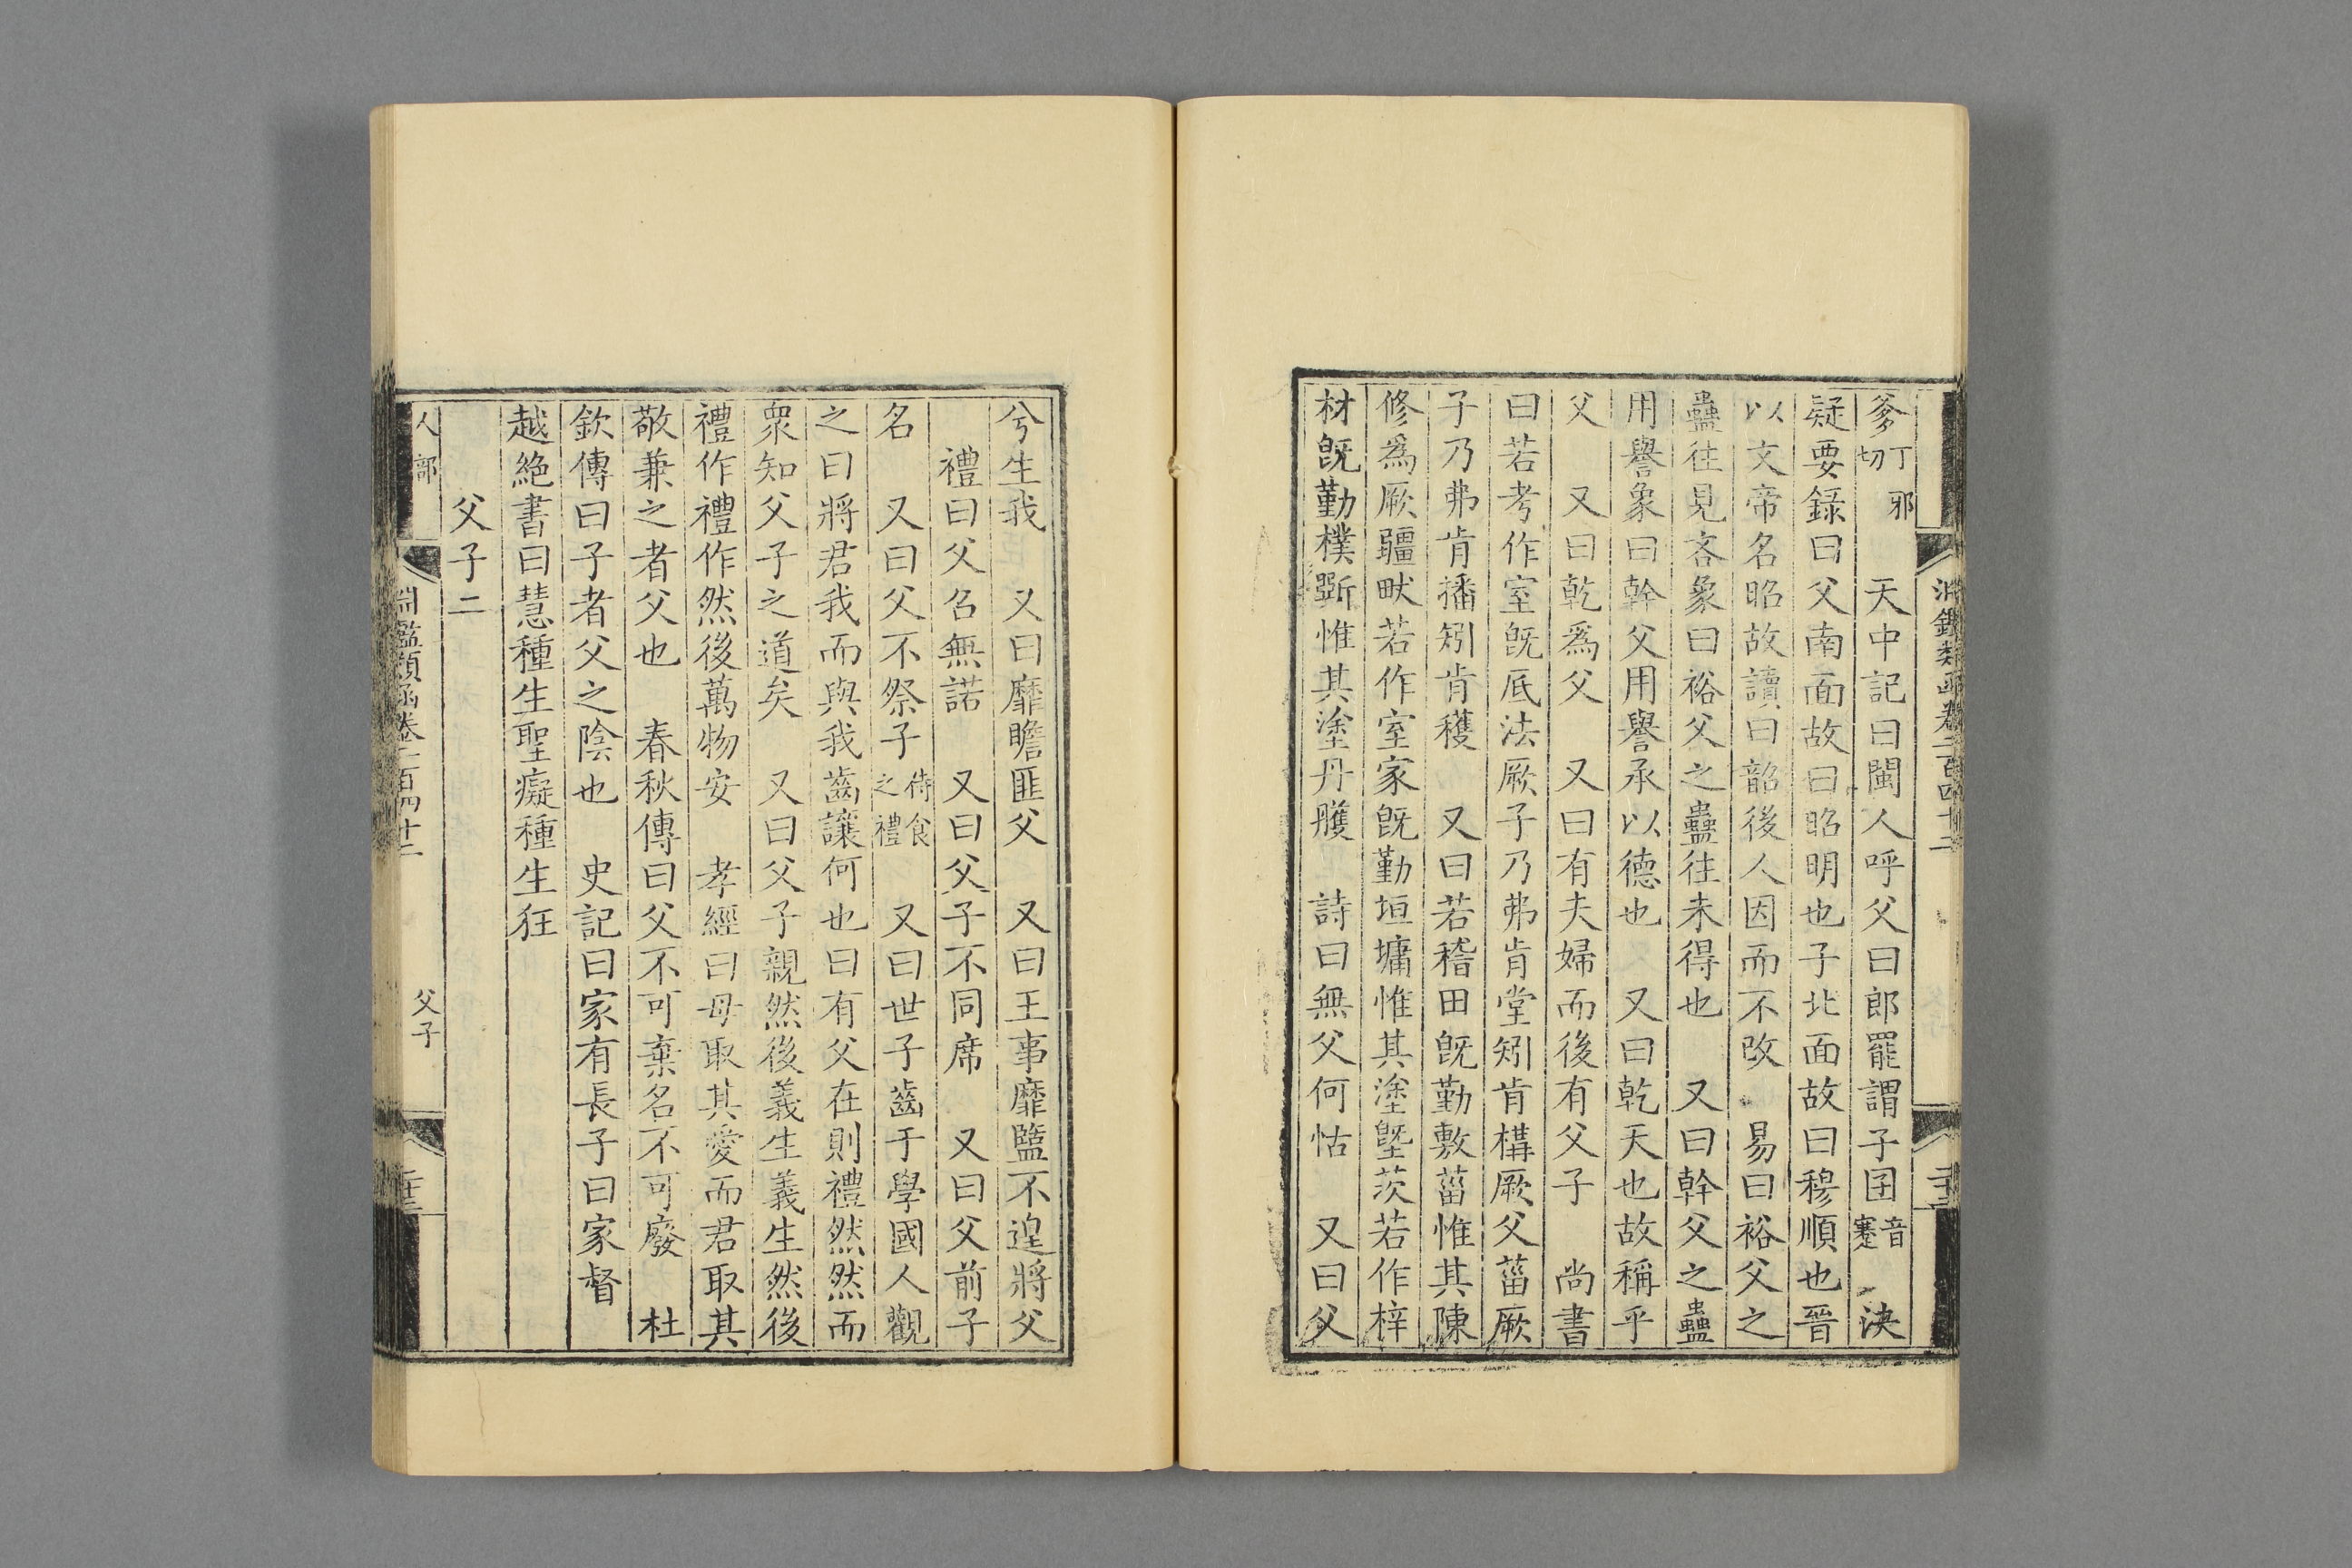 淵鑑類函卷二百四十二
爹丁邪切　天中記曰閩人呼父曰郎罷謂子囝音蹇　決
疑要錄曰父南面故曰昭明也子北面故曰穆順也晉
以文帝名昭故讀曰韶後人因而不改　易曰裕父之
蠱往見吝象曰裕父之蠱往未得也　又曰幹父之蠱
用譽象曰幹父用譽承以德也　又曰乾天也故稱乎
父　又曰乾爲父　又曰有夫婦而後有父子　尚書
曰若考作室旣底法厥子乃弗肯堂矧肯構厥父菑厥
子乃弗肯播矧肯穫　又曰若稽田旣勤敷菑惟其陳
修爲厥疆畎若作室家旣勤垣墉惟其塗塈茨若作梓
材旣勤樸斲惟其塗丹雘　詩曰無父何怙　又曰父
兮生我　又曰靡瞻匪父　又曰王事靡盬不遑將父
禮曰父召無諾　又曰父子不同席　又曰父前子
名　又曰父不祭子侍食之禮　又曰世子齒于學國人觀
之曰將君我而與我齒讓何也曰有父在則禮然然而
衆知父子之道矣　又曰父子親然後義生義生然後
禮作禮作然後萬物安　孝經曰母取其愛而君取其
敬兼之者父也　春秋傳曰父不可棄名不可廢　杜
欽傳曰子者父之陰也　史記曰家有長子曰家督
越絕書曰慧種生聖癡種生狂
父子二
人部
淵鑑類函卷二百四十二
父子